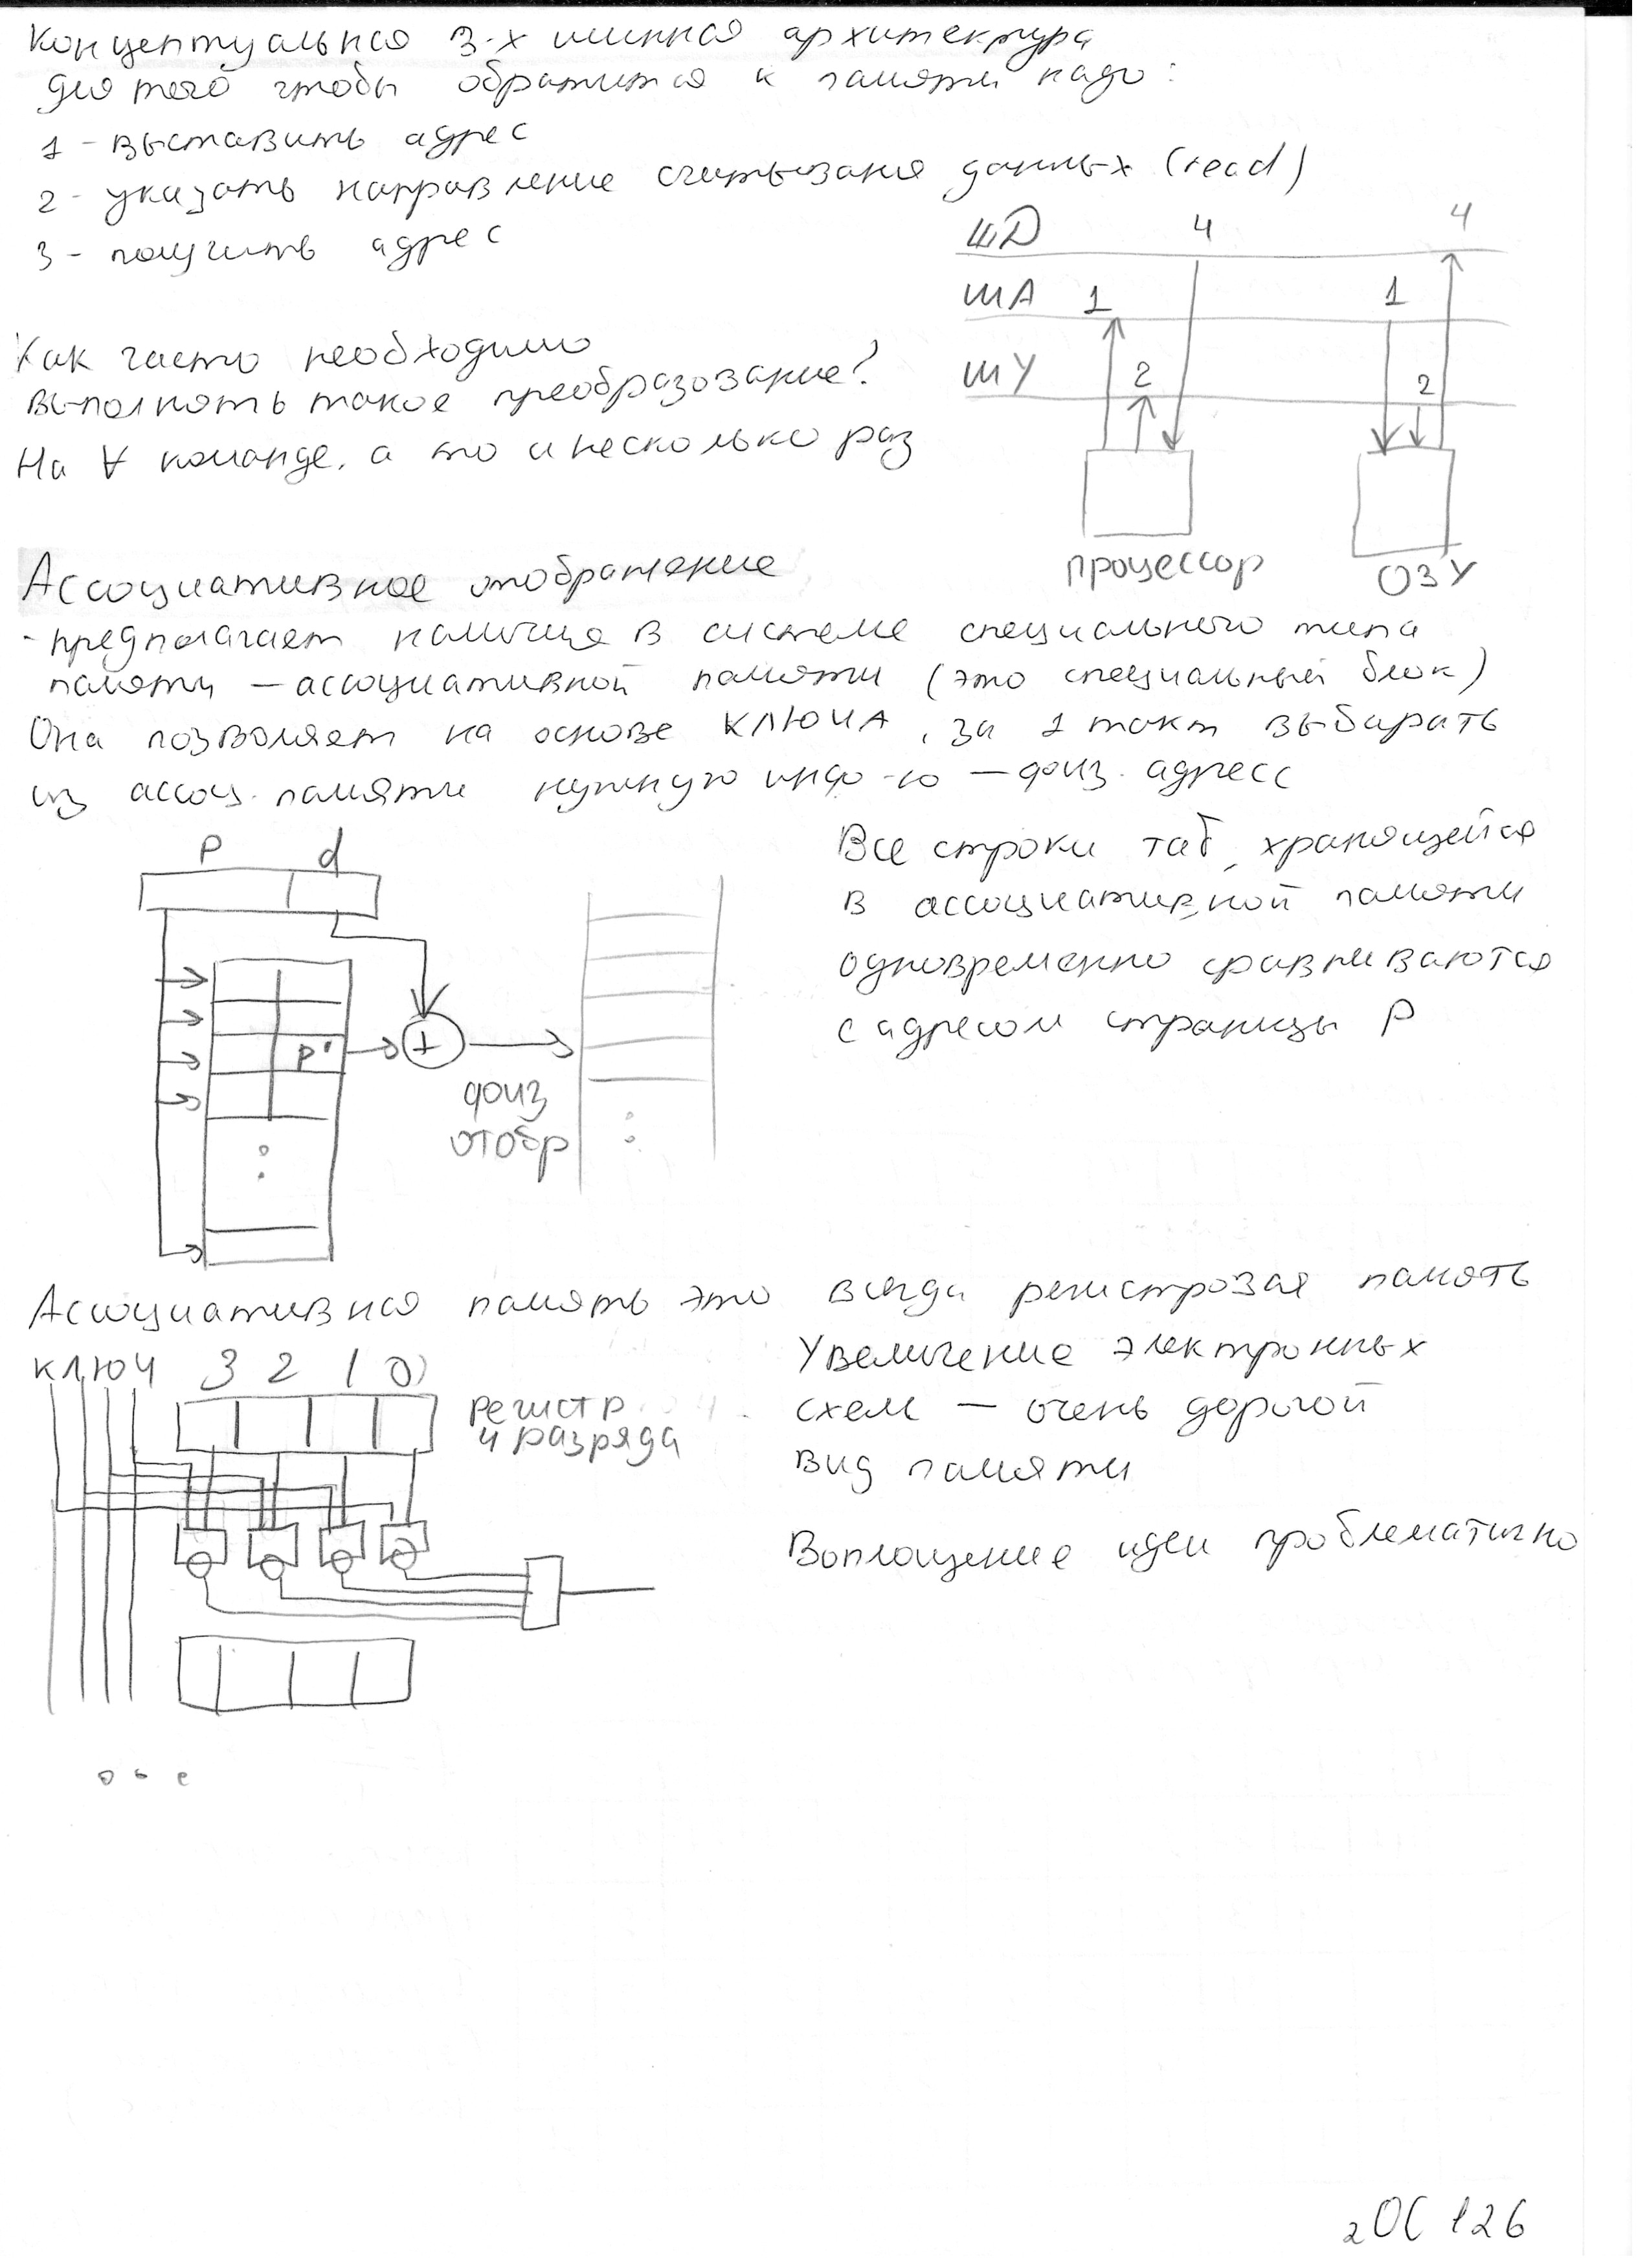 Концептуальная 3-х шинная архитектура
Для того чтобы обратится к памяти надо:
1 - выставить адрес
2 - указать направление считывания данных (read)
3 - получить адрес
ШД 4 4
ША 1 1
ШУ 2 2
процессор
ОЗУ
Как часто необходимо
выполнять такое преобразование?
На ∀ команде, а то и несколько раз
Ассоциативное отображение
- предполагает наличие в системе специального типа
памяти — ассоциативной памяти (это специальный блок)
Она позволяет на основе КЛЮЧА, за 1 такт выбирать
из ассоц. памяти нужную инф-ю — физ. адресс
p d
p'
+
физ
отобр
Все строки таб, хранящейся
в ассоциативной памяти
одновременно сравниваются
с адресом страницы p
Ассоциативная память это всегда регистровая память
ключ 3 2 1 0
регистр
4 разряда
Увеличение электронных
схем — очень дорогой
вид памяти
Воплощение идеи проблематично
2ОС 126